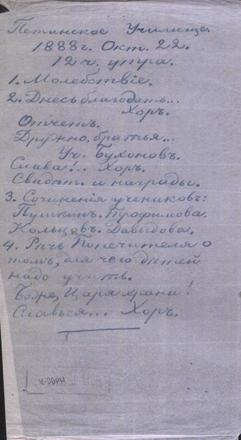 Петинское Училище.
1888 г. Окт. 22.
12 ч. утра.
1. Молебствіе.
2. Днесь благодать...
Хоръ.
Отчетъ.
Дружно, братья...
Уч. Бухоновъ.
Слава!.. Хоръ.
Свидѣт. и награды.
3. Сочиненія учениковъ:
Пушкинъ, Трофимова.
Кольцовъ, Давыдова.
4. Рѣчь Попечителя о
томъ, для чего дѣтей
надо учить.
Боже, Царя храни!
Славься... Хоръ.